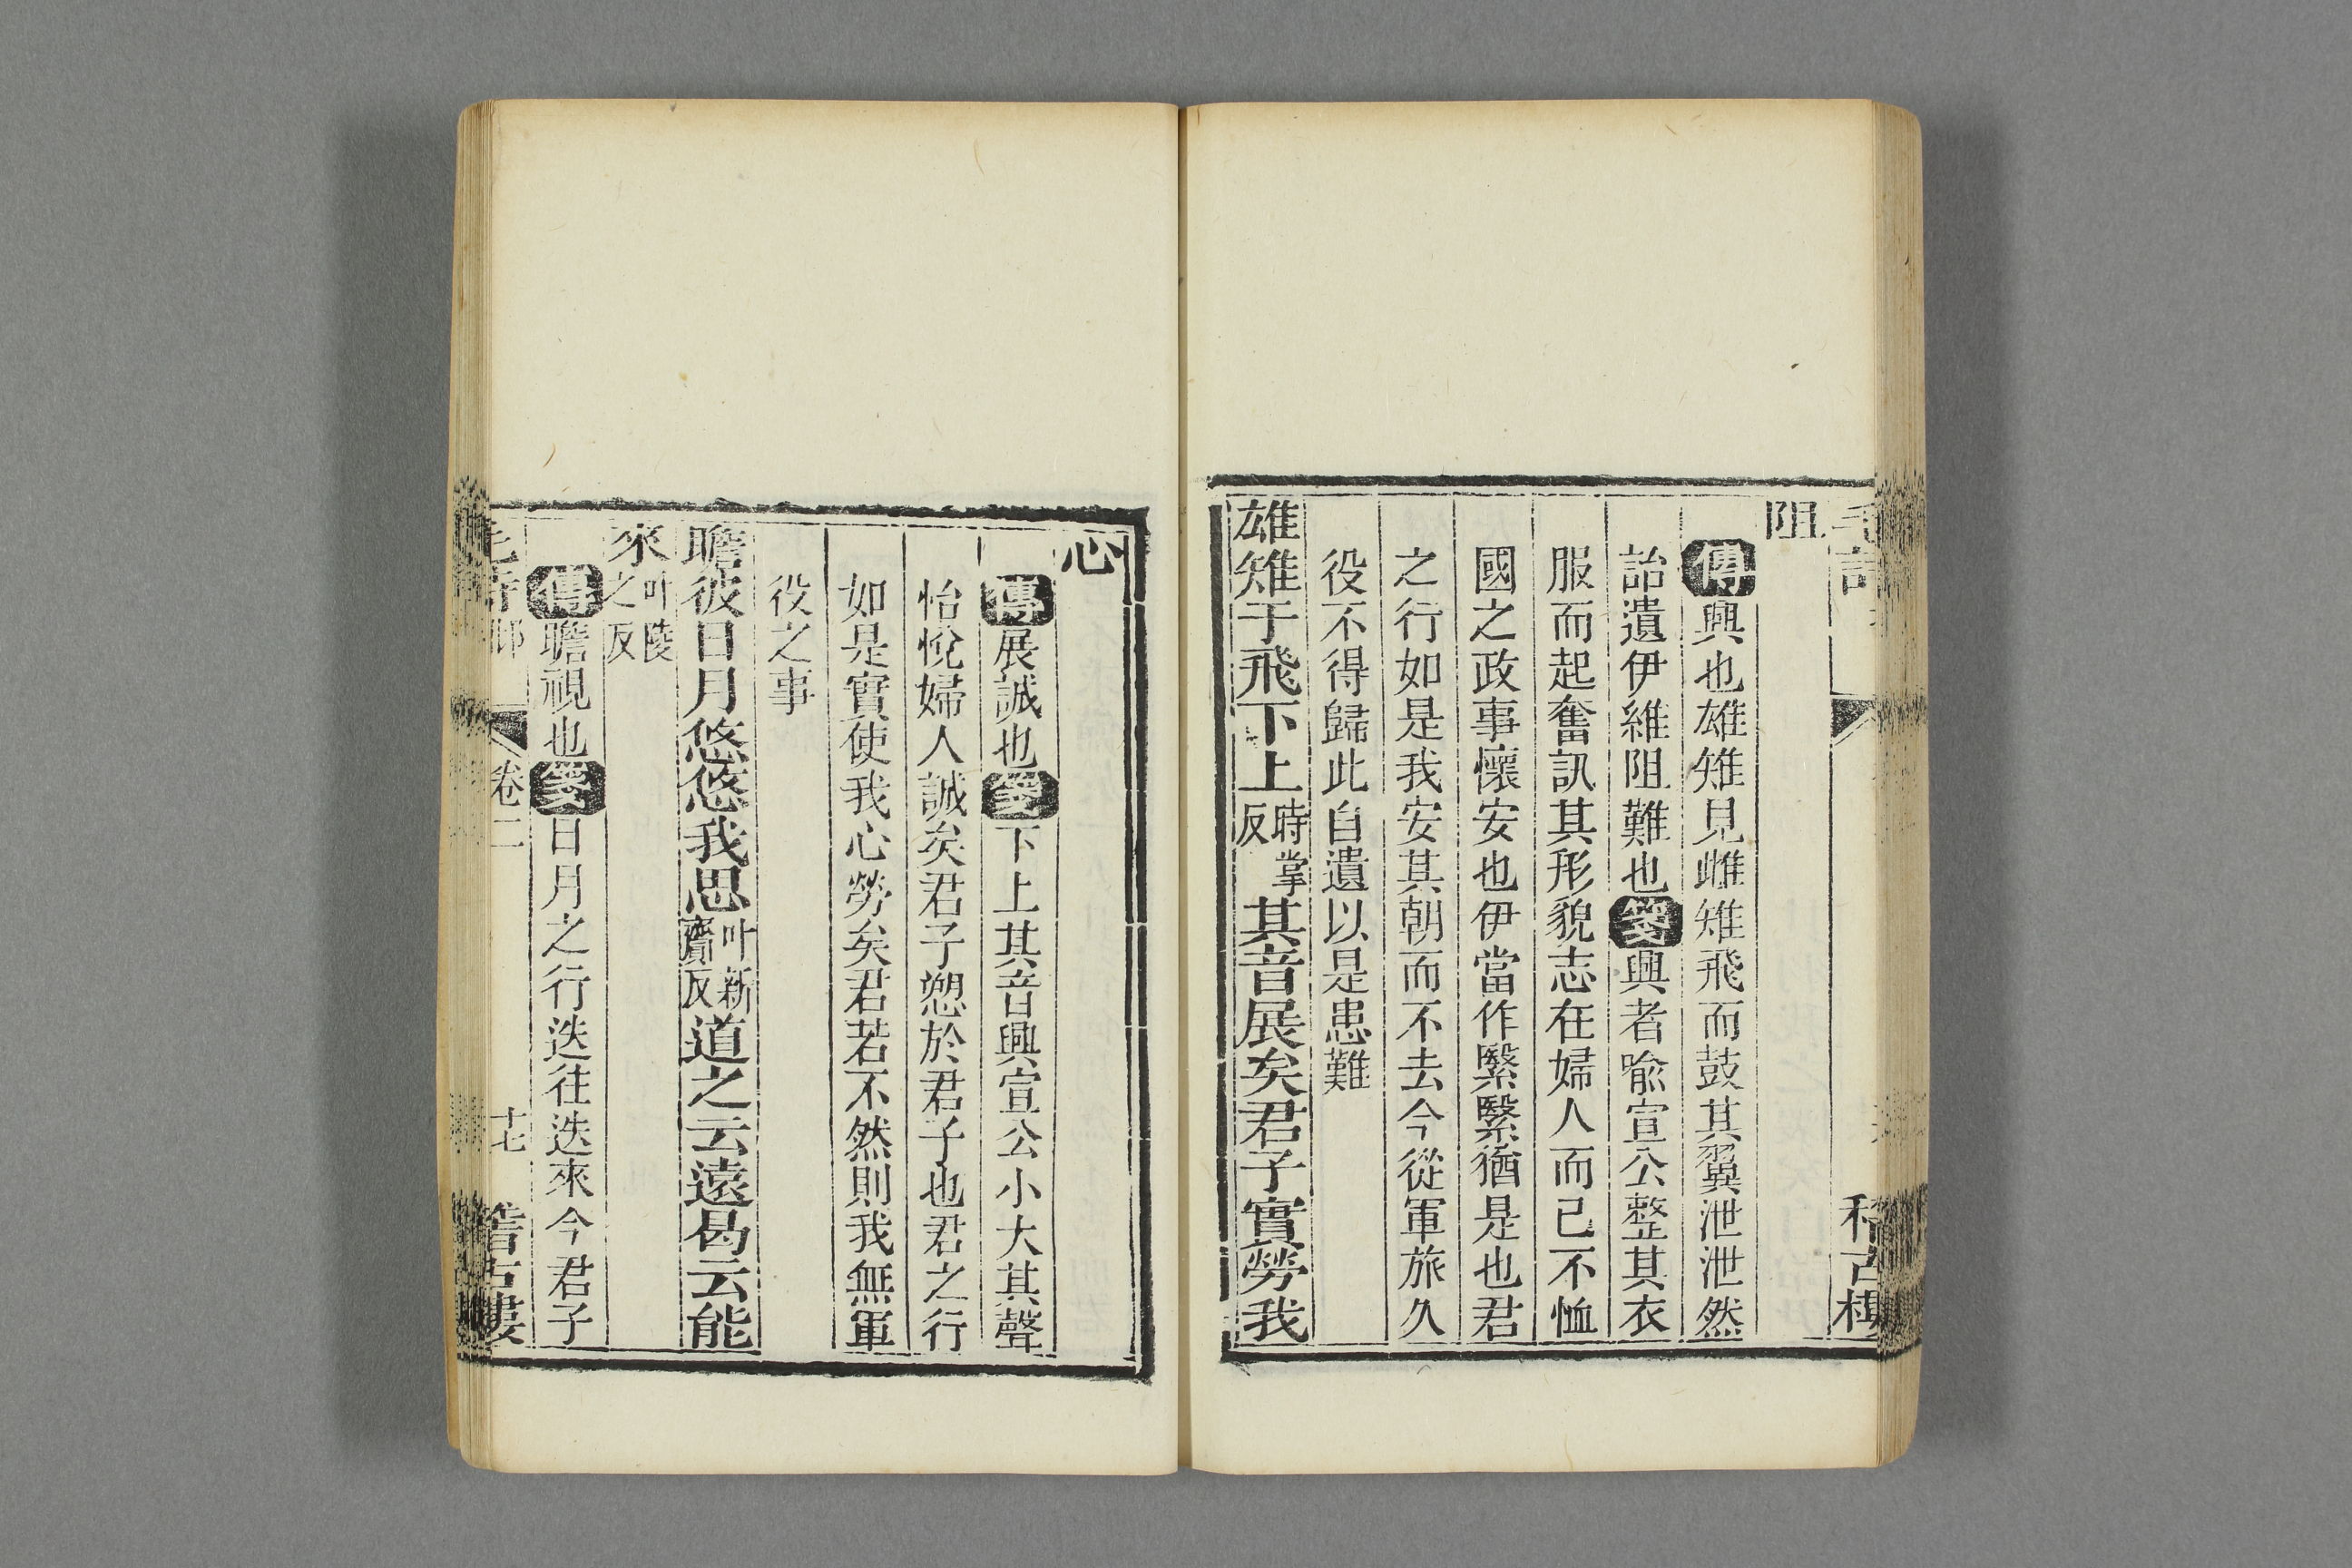 毛詩
稽古樓
阻
傳興也雄雉見雌雉飛而鼓其翼泄泄然
詒遺伊維阻難也箋興者喻宣公整其衣
服而起奮訊其形貌志在婦人而已不恤
國之政事懷安也伊當作繄繄猶是也君
之行如是我安其朝而不去今從軍旅久
役不得歸此自遺以是患難
雄雉于飛下上時掌反其音展矣君子實勞我
心
傳展誠也箋下上其音興宣公小大其聲
怡悅婦人誠矣君子愬於君子也君之行
如是實使我心勞矣君若不然則我無軍
役之事
瞻彼日月悠悠我思叶新齎反道之云遠曷云能
來叶陵之反
傳瞻視也箋日月之行迭往迭來今君子
毛詩 邶 卷二 十七 稽古樓